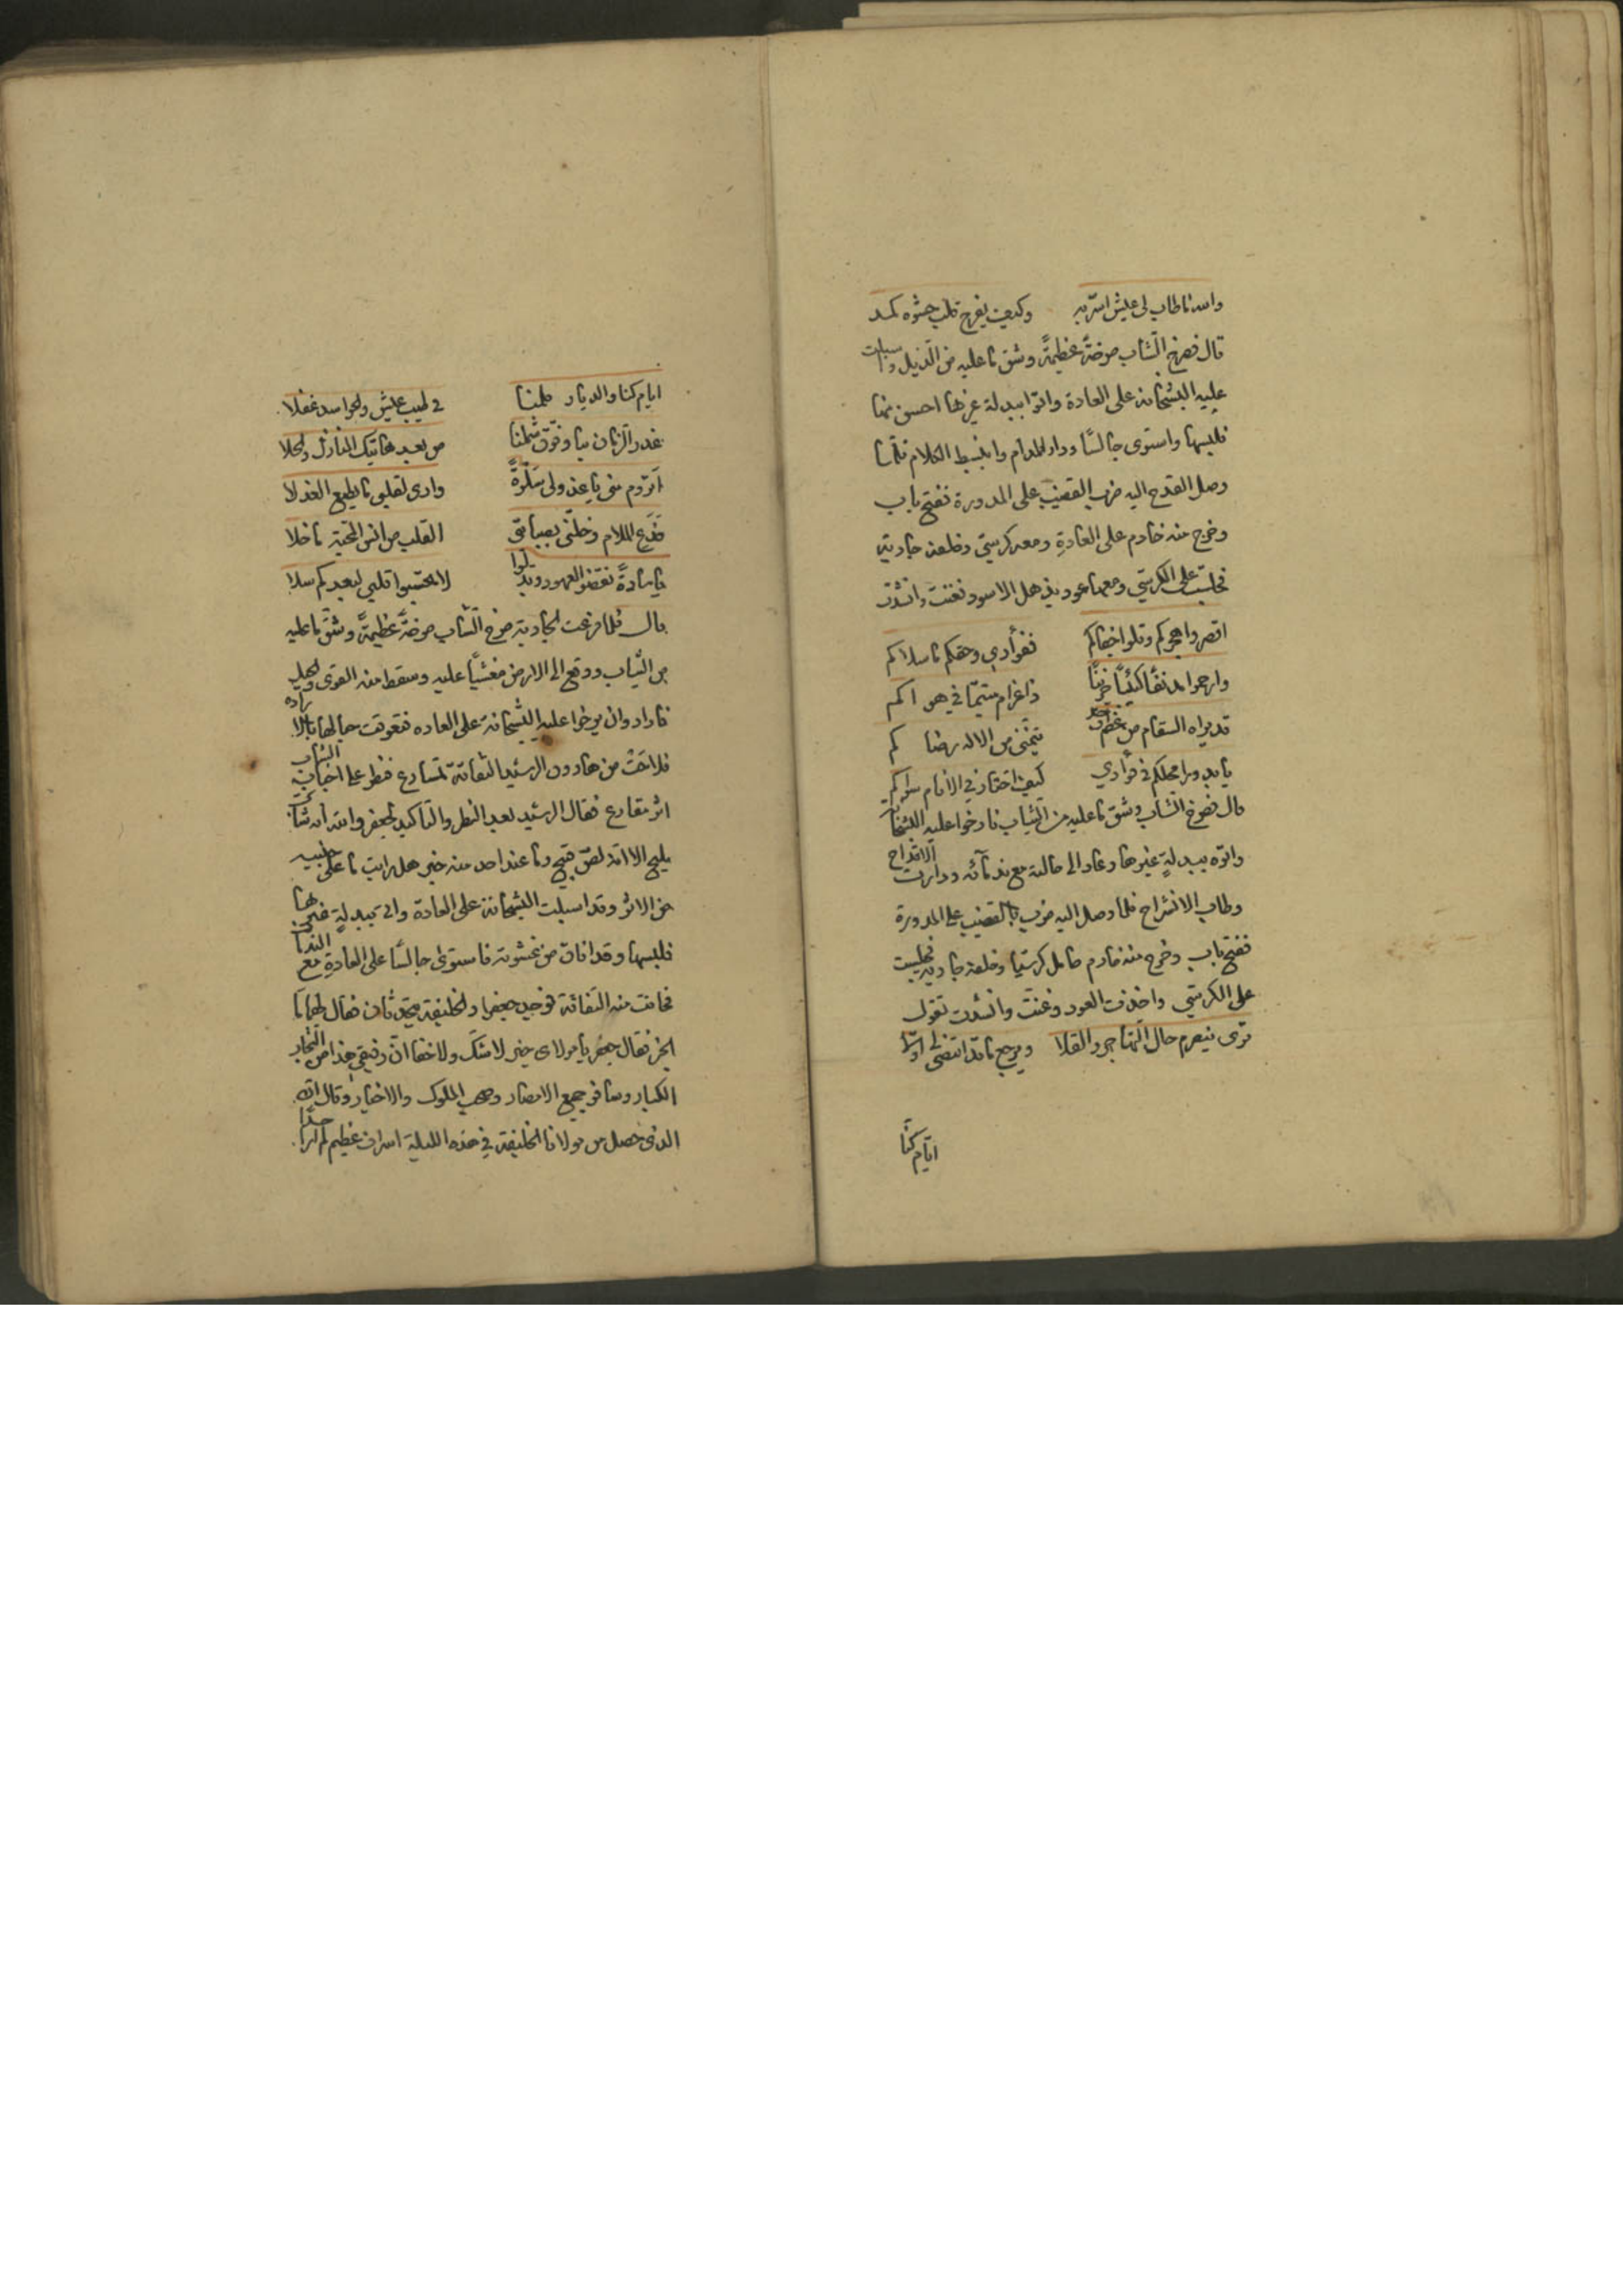 والله ما طاب لي عيش اسرّ به وكيف يفرح قلب حشوه كمد
قال فصرخ الشاب صرخةً عظيمةً وشق ما عليه من الذيل واسبلت
عليه البشخانه على العادة واتوا ببدلة غيرها احسن منها
فلبسها واستوى جالسًا ودار المدام وانبسط الكلام فلما
وصل القدح اليه ضرب القضيب على المدورة ففتح باب
وخرج منه خادم على العادةِ ومعه كرسي وخلفه جارية
فجلست على الكرسي ومعها عود يذهل الاسود فغنت وانشدت
اقصروا هجركم وقلوا جفاكم ففؤادي وحقكم ما سلاكم
وارحموا مدنفًا كئيبًا حزينًا ذا غرام متيمًا في هواكم
قد براه السقام من عظم وجد يتمنى من الاله رضاكم
يا بدورا محلكم في فؤادي كيف اختار في الانام سواكم
قال فصرخ الشاب وشق ما عليه من الثياب فارخوا عليه البشخانه
واتوه ببدلةٍ غيرها وعاد الى حالته مع ندمائه ودارت الاقداح
وطاب الانشراح فلما وصل اليه ضرب بالقضيب على المدورة
ففتح باب وخرج منه خادم حامل كرسيا وخلفه جارية فجلست
على الكرسي واخذت العود وغنت وانشدت تقول
ترى ينصرم حال التهاجر والقلا ويرجع ما قد انقضى لي اولا
ايام كنا
ايام كنا والديار تلمنا في طيب عيش والحواسد غفلا
غدر الزمان بنا وفرّق شملنا من بعد هاتيك المنازل والخلا
اتروم مني يا عذولي سلوةً وارى لقلبي ما يطيع العذلا
فدع الملام وخلني بصبابتي القلب من انس المحبة ما خلا
يا سادةً نقضوا العهود وبدلوا لا تحسبوا قلبي لبعدكم سلا
قال فلما فرغت الجارية صرخ الشاب صرخةً عظيمةً وشق ما عليه
من الثياب ووقع الى الارض مغشيًا عليه وسقط منه القوى والحيل
فارادوان يرخوا عليه البشخانة على العاده فتعوقت حبالها بالاراده
فلاحت من هارون الرشيد التفاتة تسارع فنظر على اجناب الشاب
اثر مقارع فقال الرشيد بعد النظر والتاكيد لجعفر والله انه شاب
مليح الا انه لص قبيح وما عند احد منه خبر هل رايت ما على جنبيه
من الاثر وقد اسبلت البشخانة على العادة واتى ببدلةٍ غيرها
فلبسها وقد افاق من غشوته فاستوى جالسًا على العادةِ مع الندما
فحانت منه التفاتة فوجد جعفر والخليفة يتحدثان فقال لهما ما
الخبر فقال جعفر يا مولاى خير لا شك ولا خفا انّ رفيقي هذا من التجار
الكبار وسافر جميع الامصار وصحب الملوك والاخيار وقال انّه
الذي حصل من مولانا الخليفة في هذه الليلة اسراف عظيم لم ار احدًا